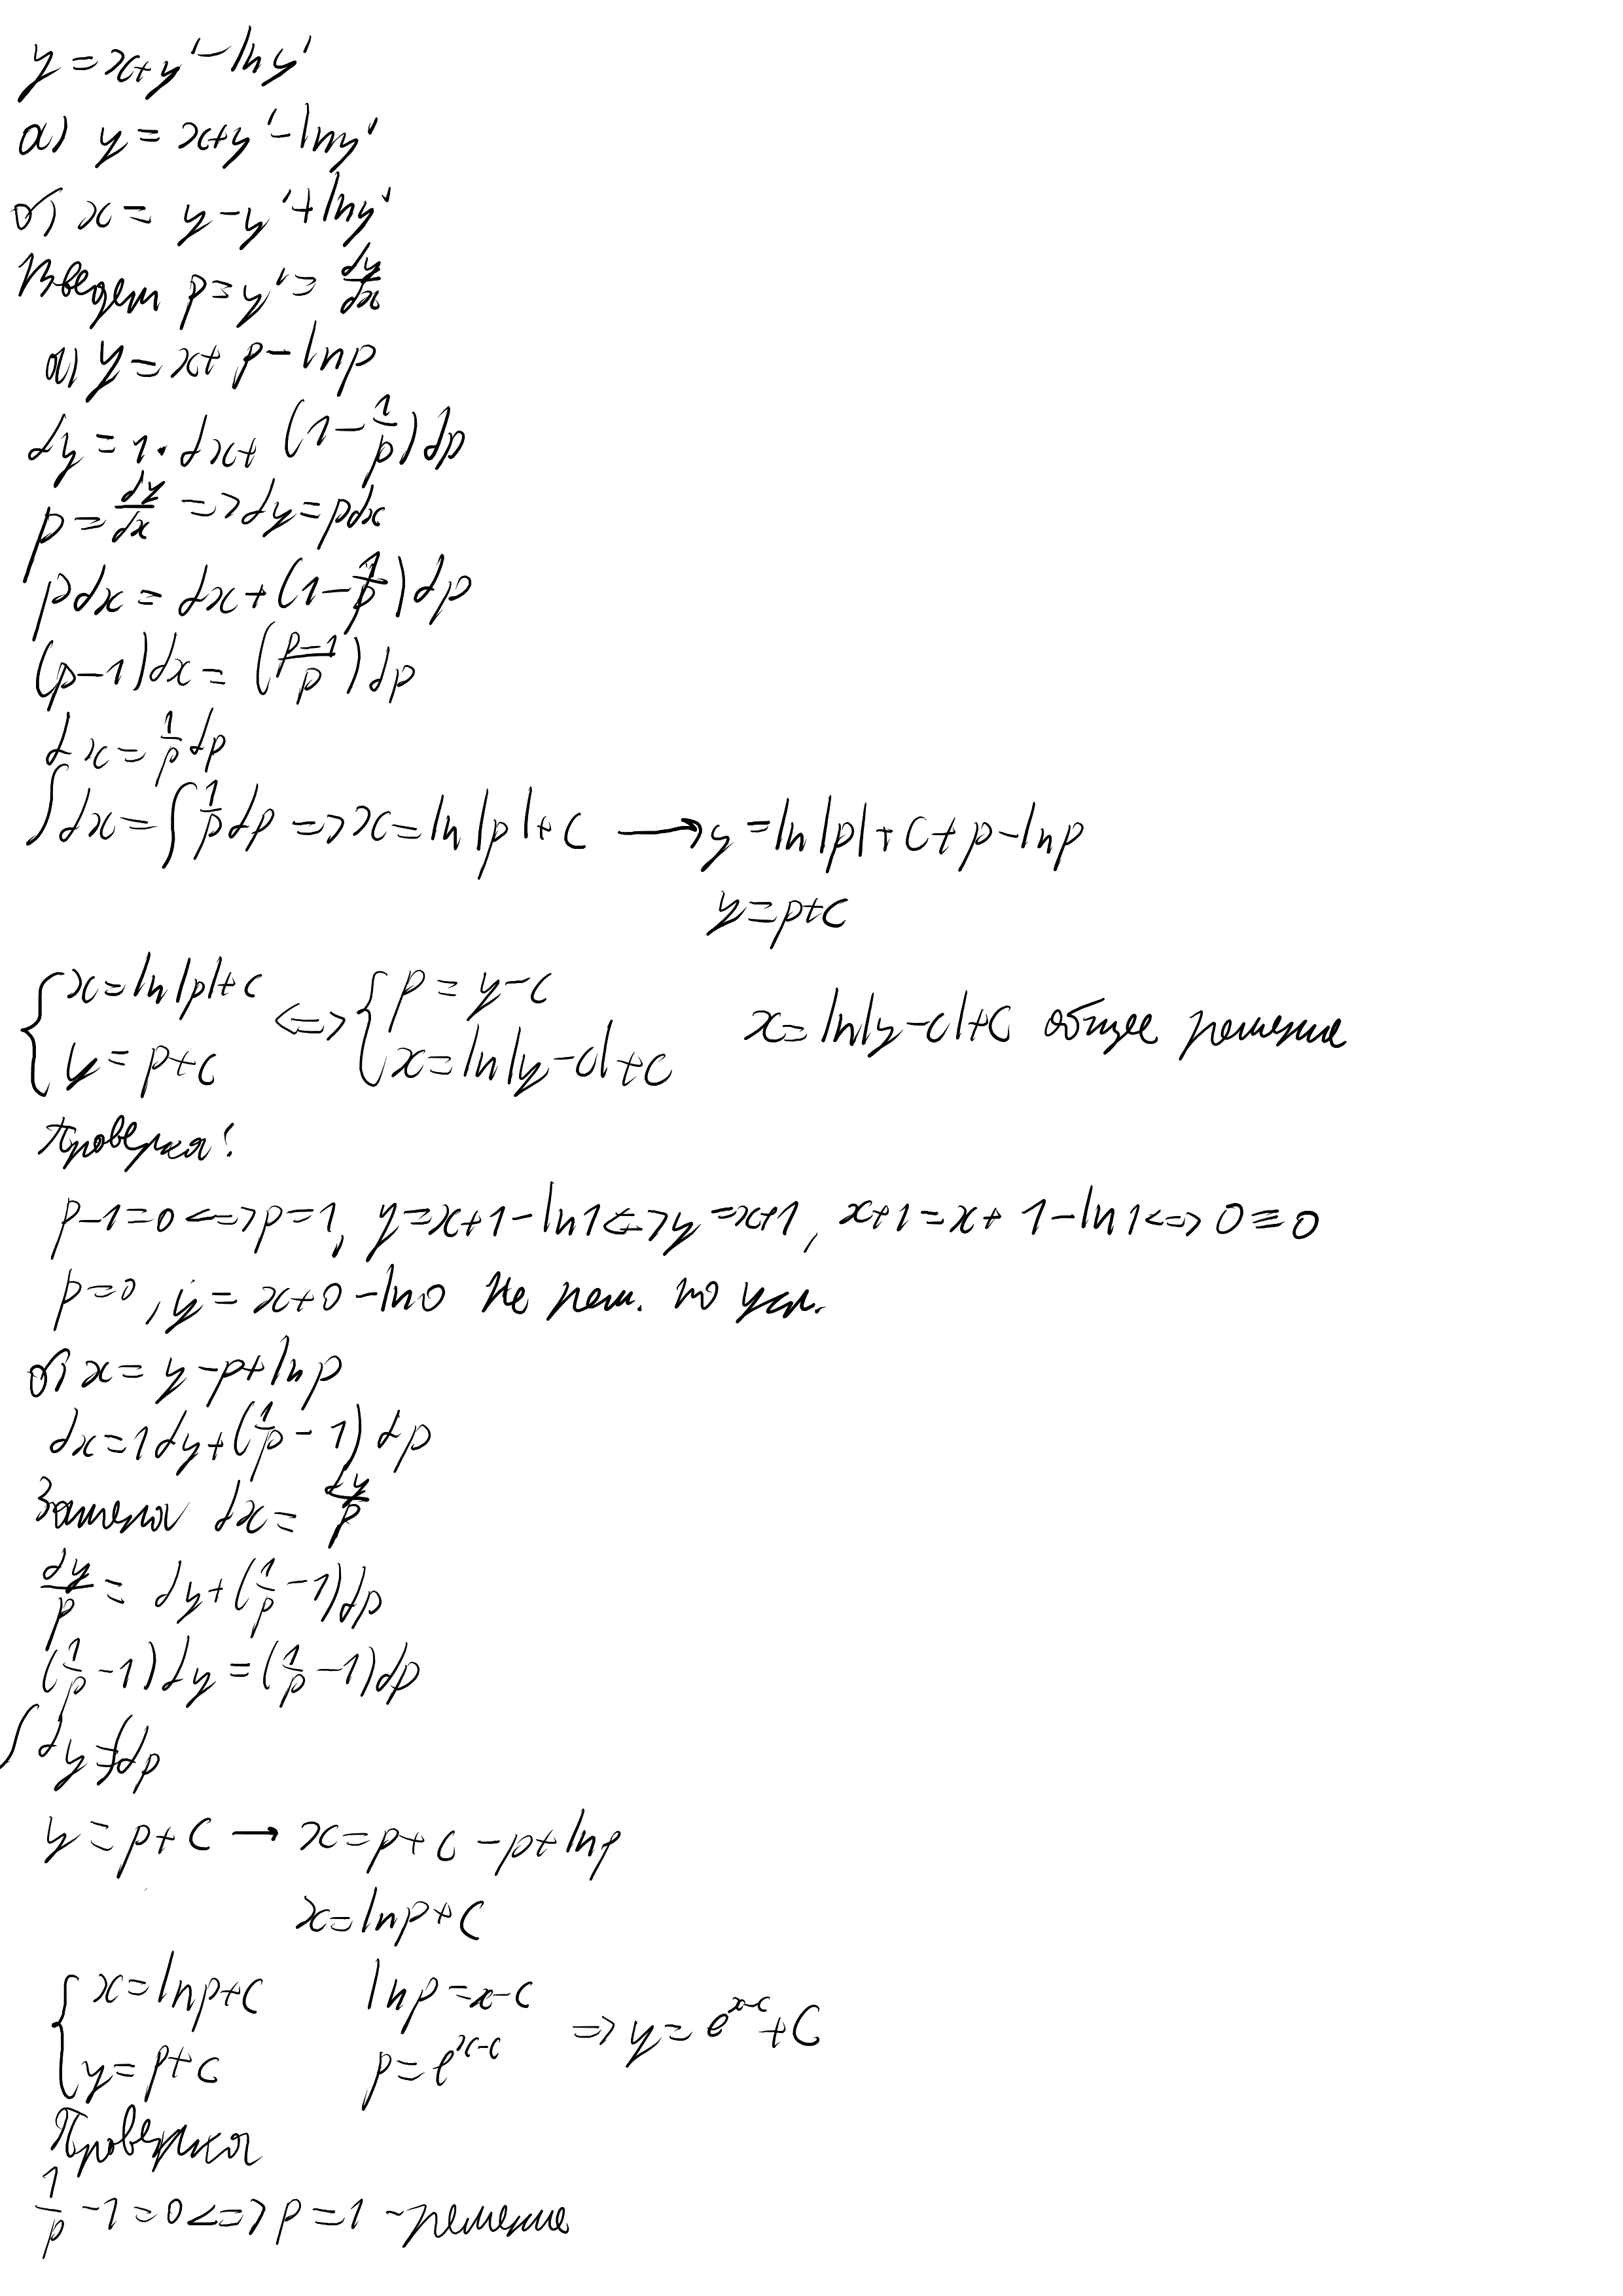 y = x+y' - ln y'
а) y = x+y' - ln y'
б) x = y - y' + ln y'
Введем p = y' = dy/dx
а) y = x + p - ln p
dy = 1 · dx + (1 - 1/p) dp
p = dy/dx => dy = pdx
pdx = dx + (1 - 1/p) dp
(p-1)dx = ((p-1)/p) dp
dx = 1/p dp
∫dx = ∫ 1/p dp => x = ln|p| + C → y = ln|p| + C + p - ln p
y = p+C
{ x = ln|p|+c y = p+c <=> { p = y-c x = ln|y-c|+c x = ln|y-c|+C общее решение
Проверка:
p-1=0 <=> p=1, y=x+1-ln1 <=> y=x+1, x+1=x+1-ln1 <=> 0≡0
p=0, y = x+0-ln0 не реш. по усл.
б) x = y - p + ln p
dx = 1dy + (1/p - 1) dp
Замена dx = dy/p
dy/p = dy + (1/p - 1)dp
(1/p - 1) dy = (1/p - 1)dp
∫dy = ∫dp
y = p + C → x = p + c - p + ln p
x = ln p + C
{ x = ln p + C y = p + c ln p = x - c p = e^(x-c) => y = e^(x-c) + C
Проверка
1/p - 1 = 0 <=> p = 1 - решение